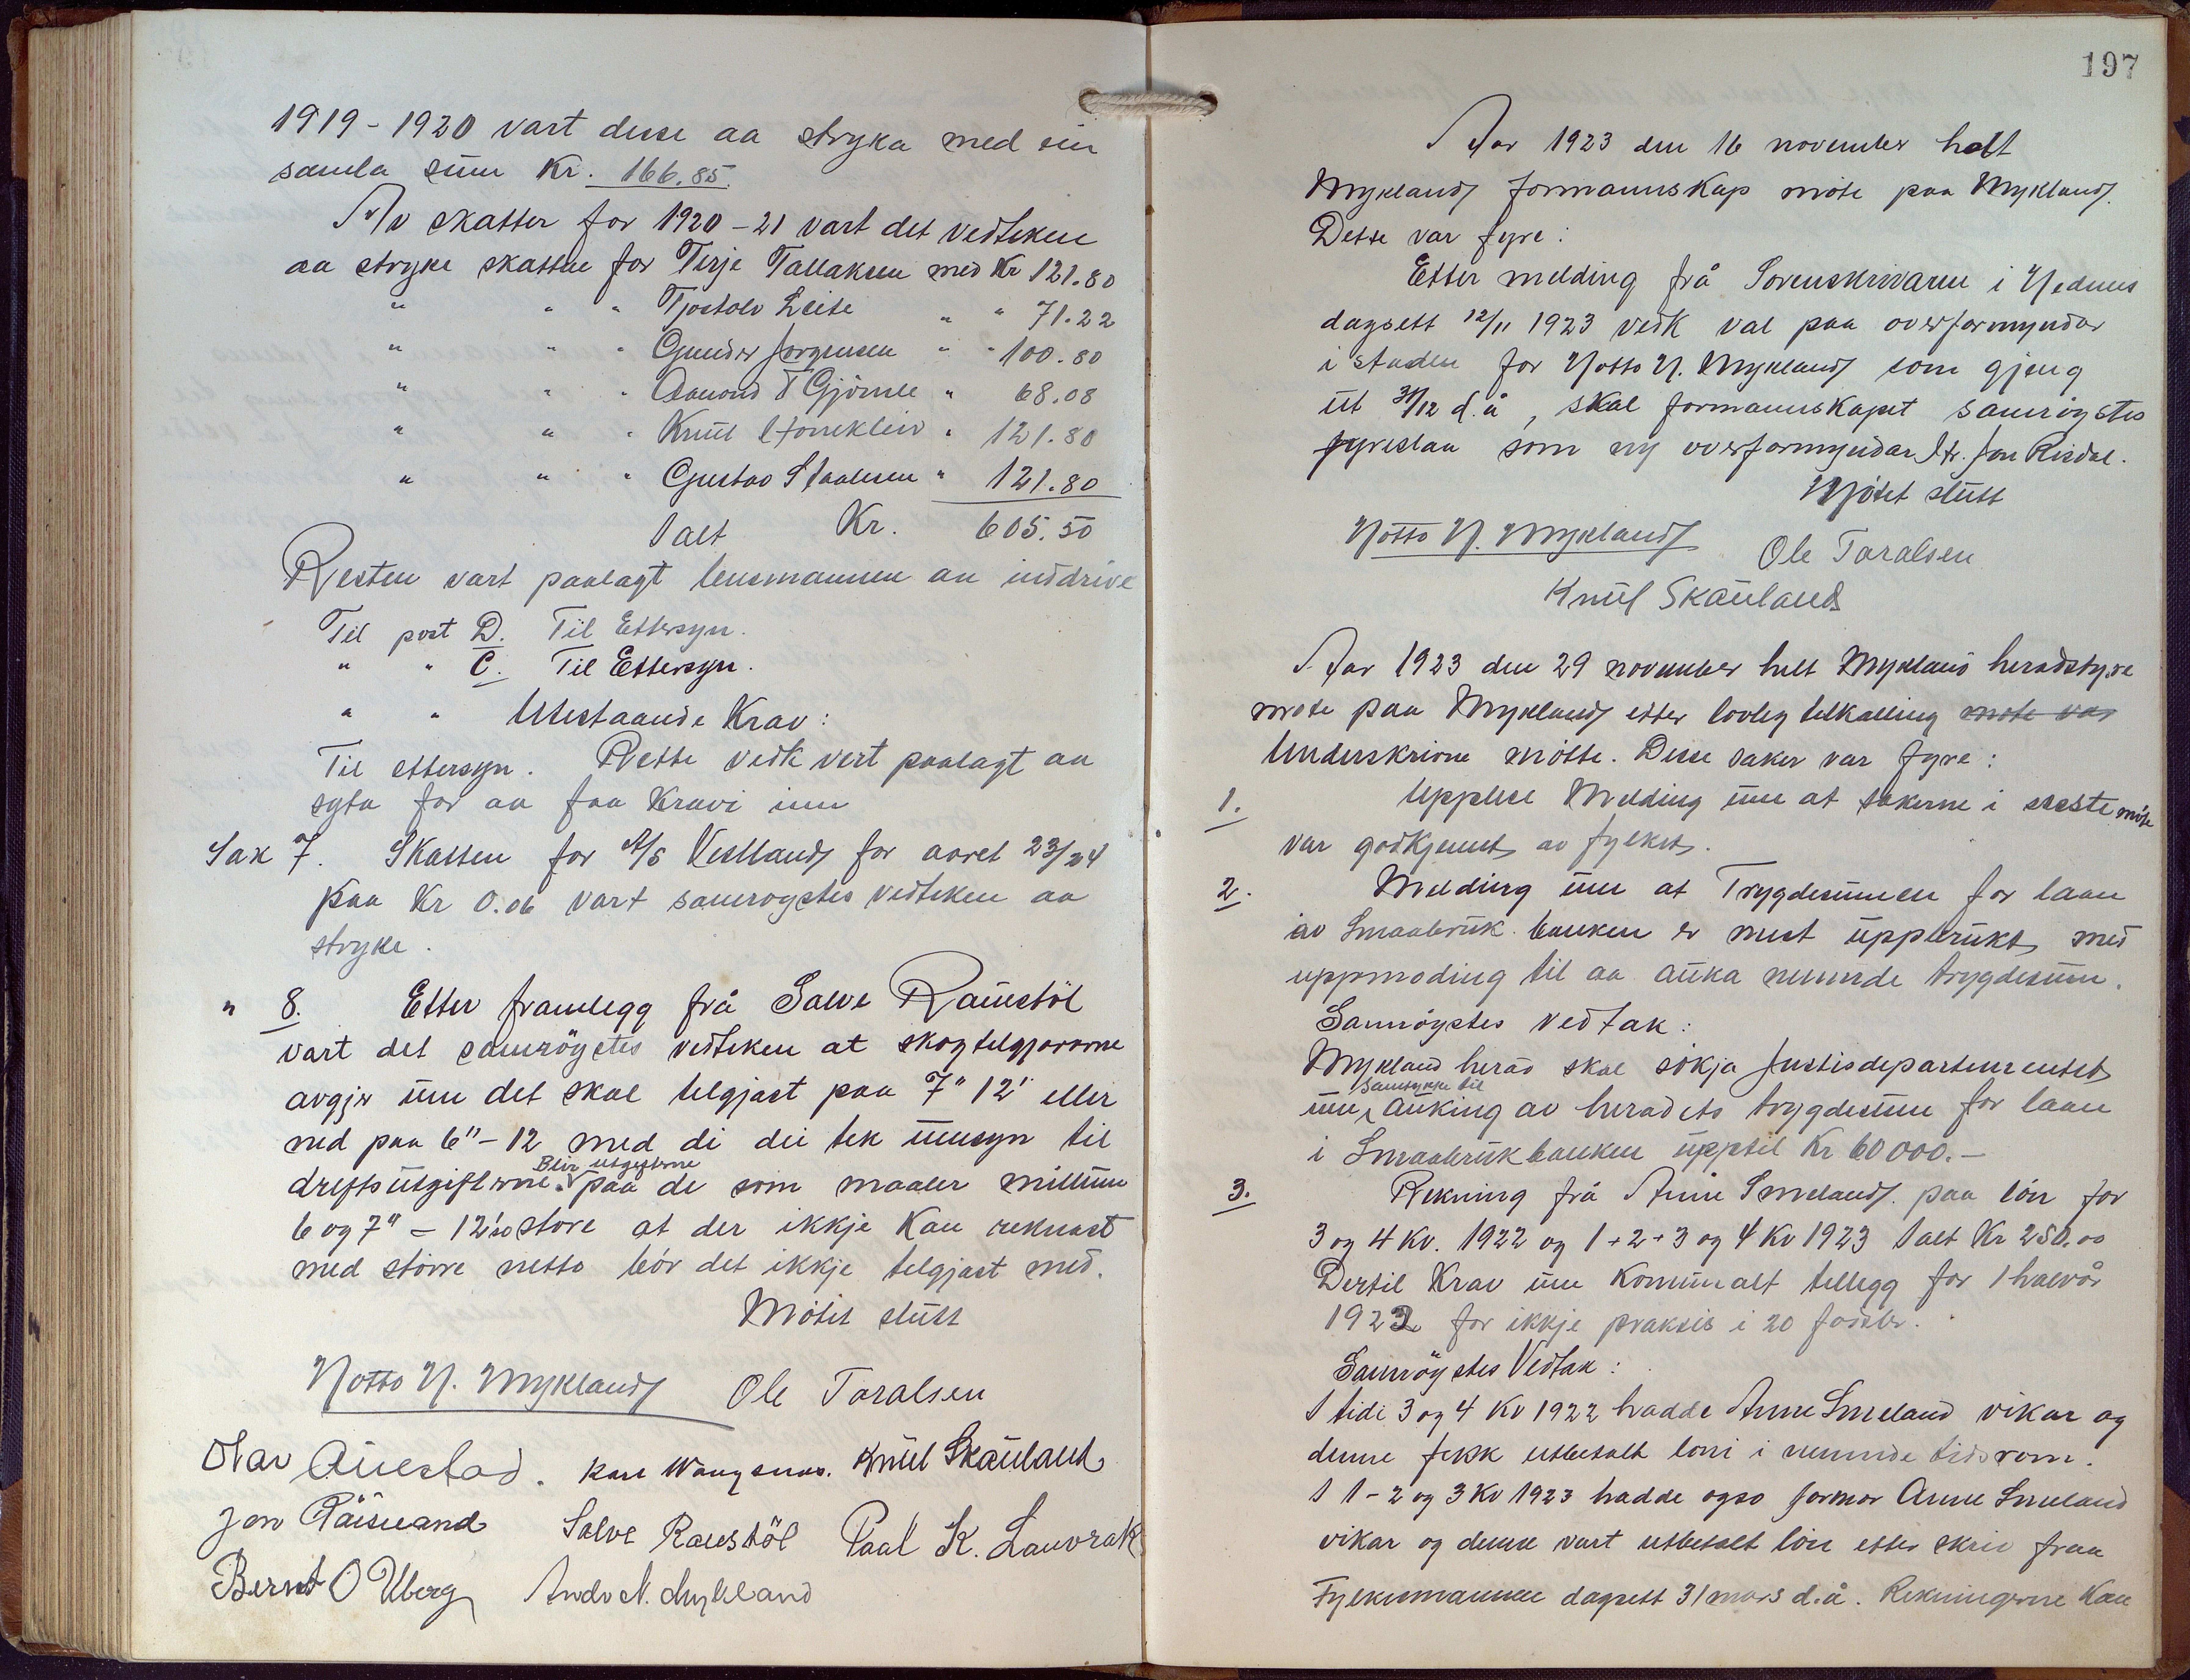 1919-1920 vart desse aa stryka med ein
samla sum Kr. 166.85.
Av skatter for 1920-21 vart det vedteken
aa stryke skattne for Terje Tallaksen med Kr 121.80
" " " Tjostolv Leite " " 71.22
" " " Gunder Jørgensen " " 100.80
" " " Aamond T Gjömle " 68.08
" " " Knut " 121.80
" " " Gustav Staalesen " 121.80
I alt Kr. 605.50
Resten vart paalagt lensmannen aa inddrive
Til post D. Til Ettersyn.
" " C. Til Ettersyn.
" " Utestaande Krav:
Til ettersyn. Rette vedk vert paalagt aa
syta for aa faa Kravi inn
Sak 7. Skatten for A/S Vestland for aaret 23/24
paa Kr 0.06 vart samrøystes vedteken aa
stryke.
" 8. Etter framlegg frå Salve Raustöl
vart det samröystes vedteken at skogtelgjararne
avgjer um det skal telgjast paa 7" 12' eller
ned paa 6"-12 med di dei tek umsyn til
driftsutgifterne. Blir utgifterne paa de som maaler millum
6 og 7" - 12' so store at der ikkje kan reknast
med större netto bör det ikkje telgjast med.
Mötet slutt
Notto N. Mykland Ole Taralsen
Olav Auestad. Kare Wangsnes. Knut Skauland
Jon Salve Raustöl Paal K. Lauvrak
Bernt O Uberg Andr N. Mykland
197
Aar 1923 den 16 november helt
Mykland formannskap möte paa Mykland.
Dette var fyre:
Etter melding frå Sorenskrivaren i Nedenes
dagsett 12/11 1923 vedk val paa overformyndar
i staden for Notto N. Mykland som gjeng
ut 31/12 d.å, skal formannskapet samröystes
fyreslaa som ny overformyndar Hr. Jon Risdal.
Mötet slutt
Notto N. Mykland Ole Taralsen
Knut Skauland
Aar 1923 den 29 november helt Mykland heradstyre
möte paa Mykland etter lovleg tilkalling möte var
Underskrivne mötte. Desse saker var fyre:
1. Upplese Melding um at sakerne i siste möte
var godkjennt av fylket.
2. Melding um at Trygdesummen for laan
av Smaabruk banken er mest uppbrukt med
uppmoding til aa auka nemnde trygdesum.
Samröystes vedtak:
Mykland herad skal sökja Justisdepartementet
um samtykke til auking av heradets trygdesum for laan
i Smaabrukbanken upptil Kr 60000.-
3. Rekning frå Anne Smeland. paa lön for
3 og 4 Kv. 1922 og 1+2+3 og 4 Kv 1923 I alt Kr 250.00
Dertil Krav um Komunalt tillegg for 1 halvår
1923 for ikkje praksis i 20 födsler.
Samröystes Vedtak:
I tidi 3 og 4 Kv 1922 hadde Anne Smeland vikar og
denne fekk utbetalt löni i nemnde tidsrom.
I 1-2 og 3 Kv 1923 hadde ogso jormor Anne Smeland
vikar og denne vart utbetalt lön etter skriv fraa
Fylkesmannen dagsett 31 mars d.å. Rekningerne kan